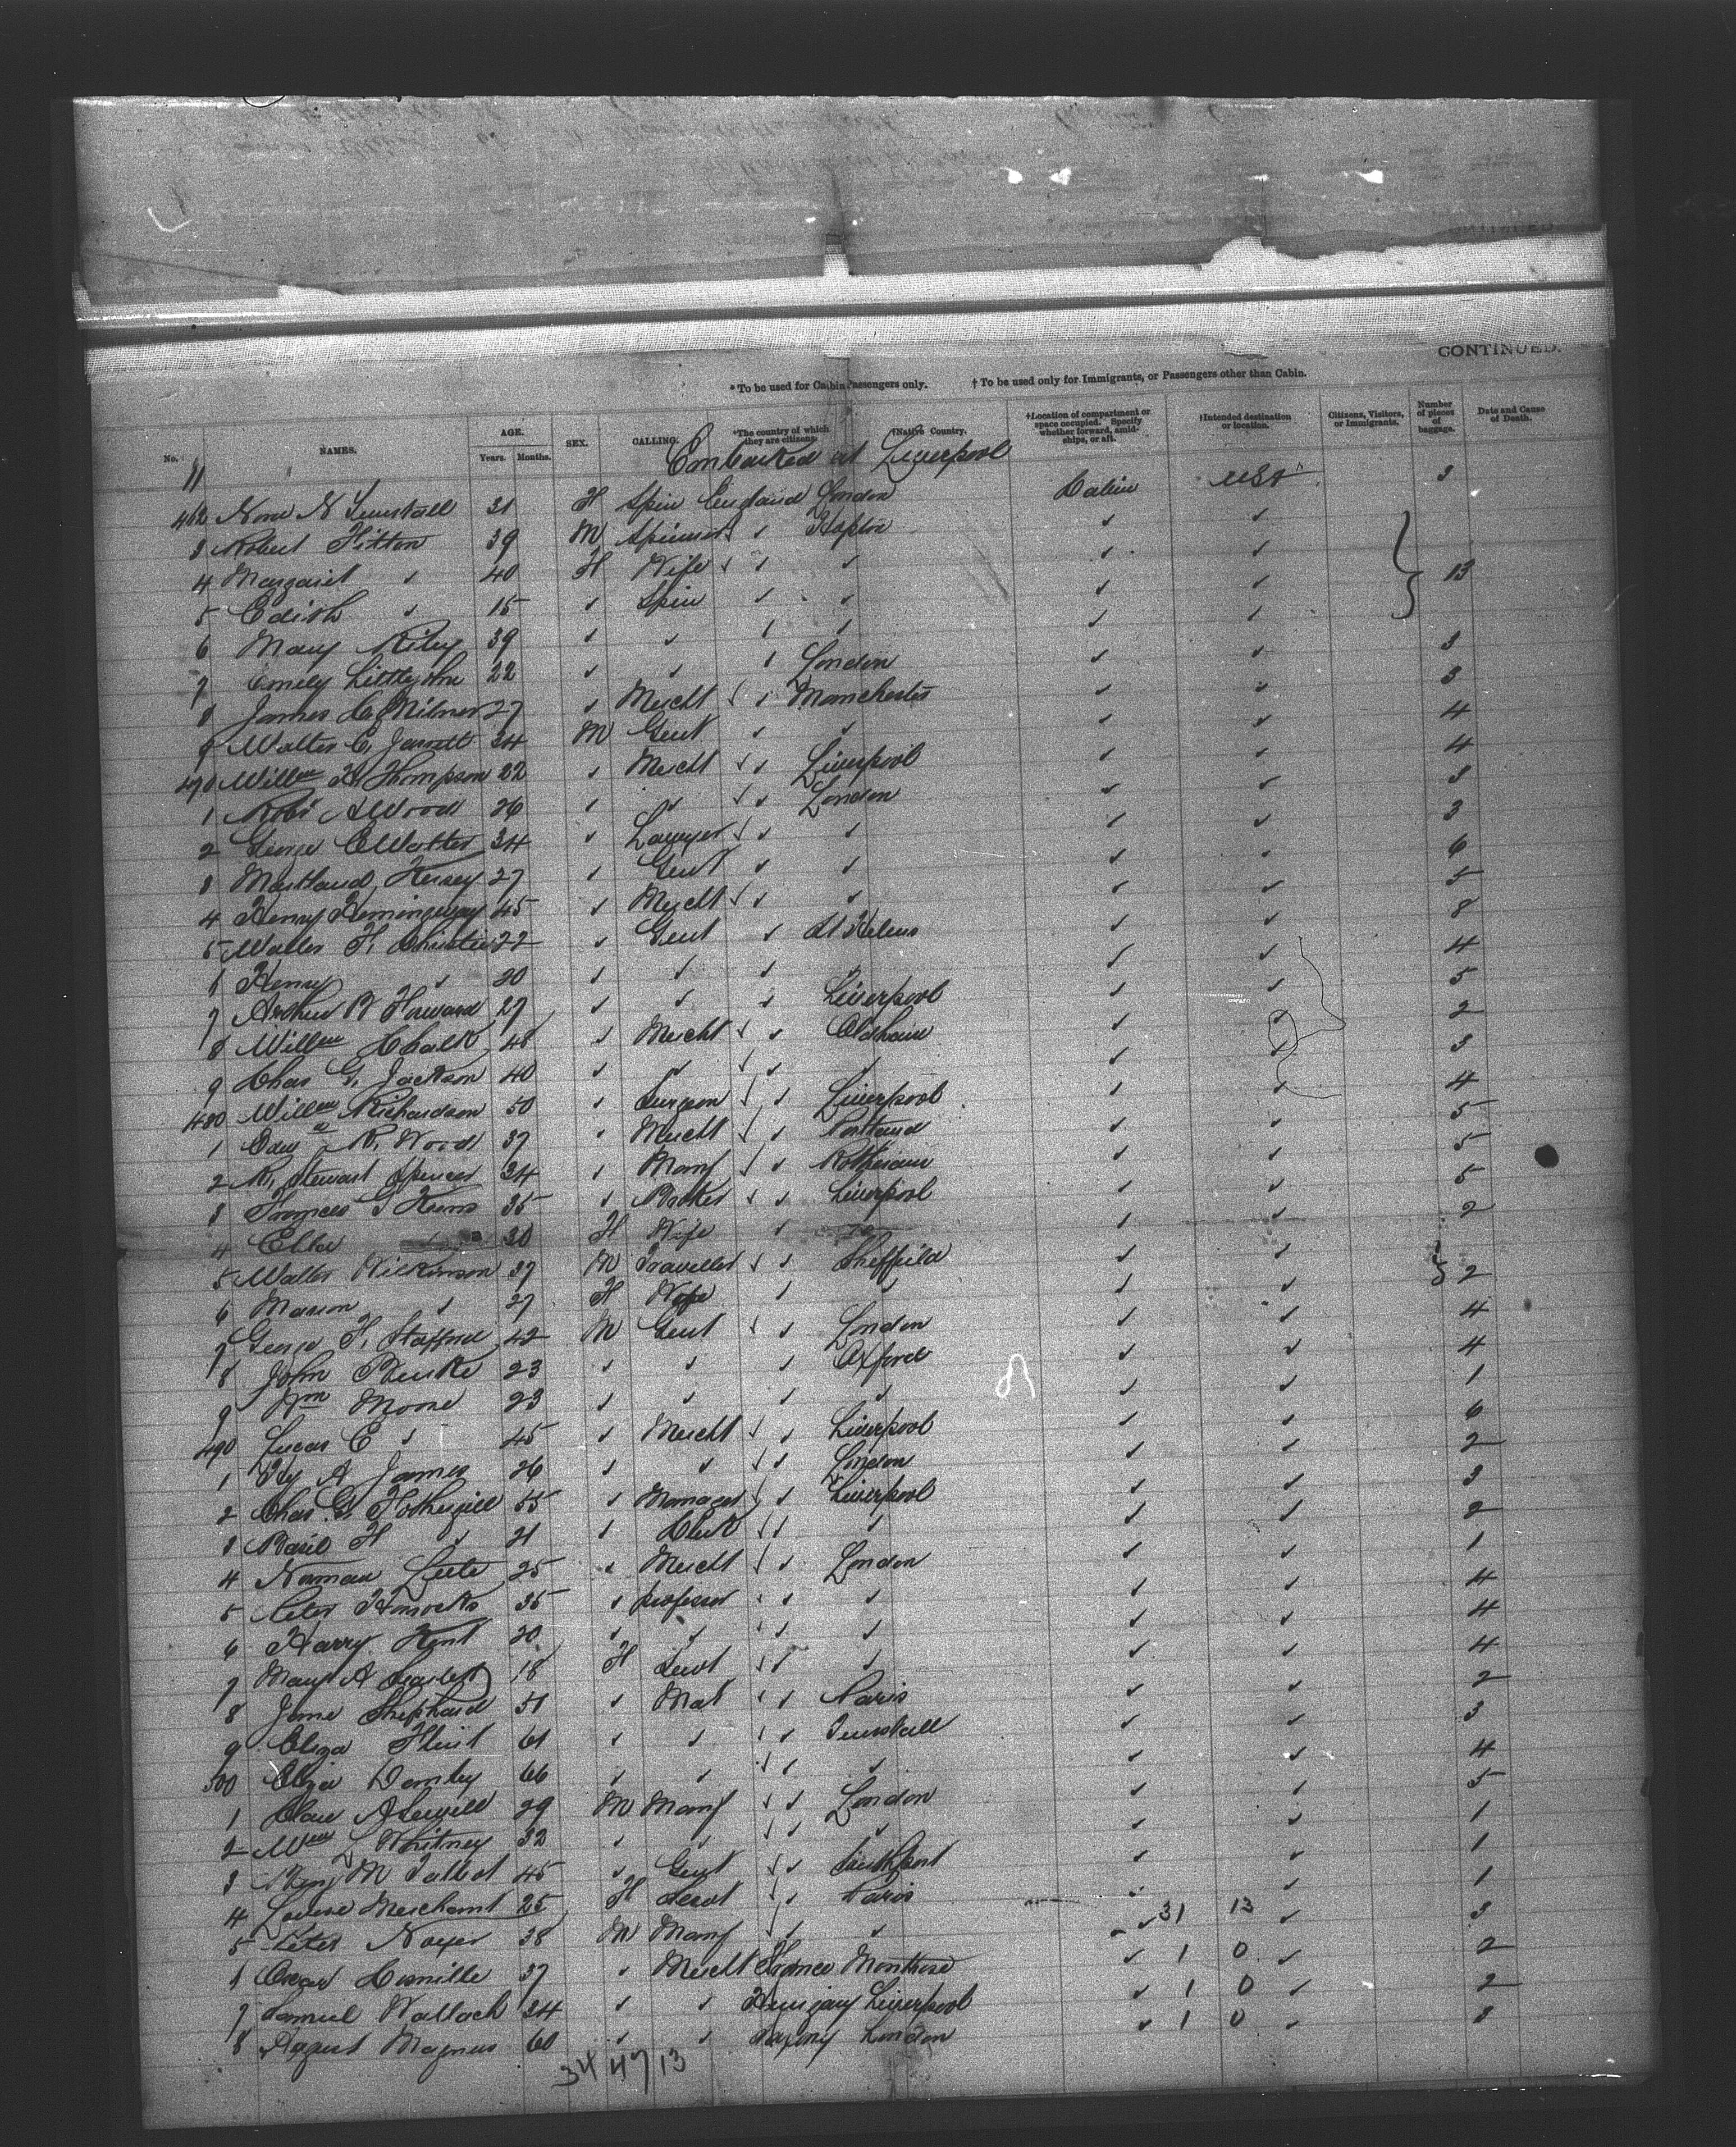 CONTINUED.
* To be used for Cabin Passengers only. † To be used only for Immigrants, or Passengers other than Cabin.
No. NAMES. AGE. Years. Months. SEX. CALLING. *The country of which they are citizens. †Native Country. †Location of compartment or space occupied. Specify whether forward, amidships, or aft. †Intended destination or location. Citizens, Visitors, or Immigrants. Number of pieces of baggage. Date and Cause of Death.
11 Embarked at Liverpool
462 N Tunstall 31 H Spin England London Cabin USA 3
3 Robert Fitton 39 M ✓
4 Margaret ✓ 40 H Wife ✓ ✓
5 Edith ✓ 15 ✓ Spin ✓ ✓ 13
6 Mary Riley 39 ✓ ✓ ✓ ✓
7 Emily Littlejohn 22 ✓ ✓ ✓ London 3
8 James Milner 27 ✓ Mercht ✓ Manchester 3
9 Walter C. Jarrett 34 M Gent ✓ ✓ 4
470 Willm H. Thompson 22 ✓ Mercht ✓ Liverpool 4
1 Robt A Wood 26 ✓ ✓ ✓ London 3
2 George C Watter 34 ✓ Lawyer ✓ ✓ 3
3 Maitland Kersey 27 ✓ Gent ✓ ✓ 6
4 Henry Hemingway 45 ✓ Mercht ✓ ✓ 5
5 Walter H. Christie 22 ✓ Gent ✓ St Helens 8
6 Henry ✓ 20 ✓ ✓ ✓ ✓ 4
7 Arthur R Forward 27 ✓ ✓ ✓ Liverpool 5
8 Willm Chalk 48 ✓ Mercht ✓ Oldham 2
9 Chas G. Jackson 40 ✓ ✓ ✓ ✓ 3
480 Willm Richardson 50 ✓ Surgeon ✓ Liverpool 4
1 Edwd R. Wood 37 ✓ Mercht ✓ Portland 5
2 R. Stewart Spencer 34 ✓ Manf ✓ Rotheram 5
3 35 ✓ Broker ✓ Liverpool 5
4 Ella 30 H Wife ✓ 2
5 Walter Wilkinson 37 M Traveller ✓ Sheffield
6 Marion ✓ 27 H Wife ✓ ✓ 2
7 George H. Stafford 42 M Gent ✓ London 4
8 John 23 ✓ ✓ ✓ Oxford 4
9 Wm Moore 23 ✓ ✓ ✓ ✓ 1
490 Lucas C ✓ 45 ✓ Mercht ✓ Liverpool 6
1 Hy A James 26 ✓ ✓ ✓ London 2
2 Chas. G. Fothergill 55 ✓ Manager ✓ Liverpool 3
3 Basil H ✓ 21 ✓ Clerk ✓ ✓ 2
4 Norman 25 ✓ Mercht ✓ London 1
5 Peter Horrocks 35 ✓ professor ✓ ✓ 4
6 Harry Kent 20 ✓ ✓ ✓ ✓ 4
7 Mary A 18 H Servt ✓ ✓ 4
8 Jane Shephard 51 ✓ Mat ✓ Paris 2
9 Eliza Flint 61 ✓ ✓ ✓ Tunstall 3
500 Eliza 66 ✓ ✓ ✓ ✓ 4
1 29 M Manf ✓ London 5
2 Wm L Whitney 32 ✓ ✓ ✓ ✓ 1
3 Benj M Talbot 45 ✓ Gent ✓ Southport 1
4 Louise Merchant 25 H Servt ✓ Paris 1
5 Peter Noyer 38 M Manf ✓ ✓ 31 13 3
6 Oscar 37 ✓ Mercht France Montrose 1 0 2
7 Samuel Wallach 34 ✓ ✓ Hungary Liverpool 1 0 2
8 August Magnus 60 ✓ ✓ Saxony London 1 0 3
34 47 13